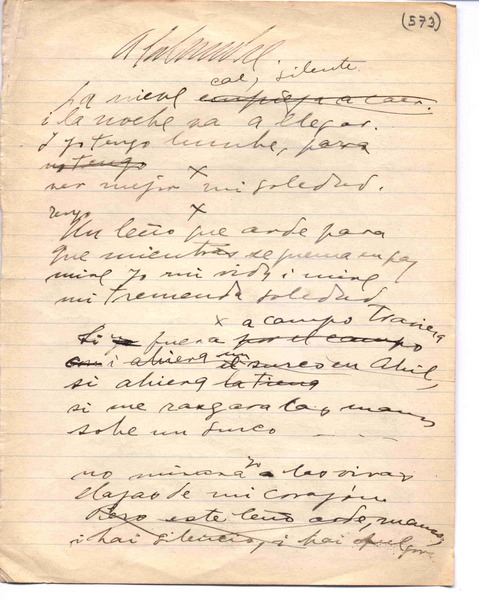 (573)
A la lumbre
cae, silente.
La nieve empieza a caer.
i la noche va a llegar.
I yo tengo lumbre, para
no tengo
ver mejor mi soledad.
tengo
Un leño que arde para
que mientras se quema en paz
mire yo mi vida i mire
mi tremenda soledad
a campo traviesa
Si yo fuera por el campo
i abriera un el surco en Abril,
si abriera la tierra
si me rasgara las manos
sobre un surco
no mirara yo a las vivas
de mi corazón
Pero este leño arde, manso,
i hai silencio, i hai